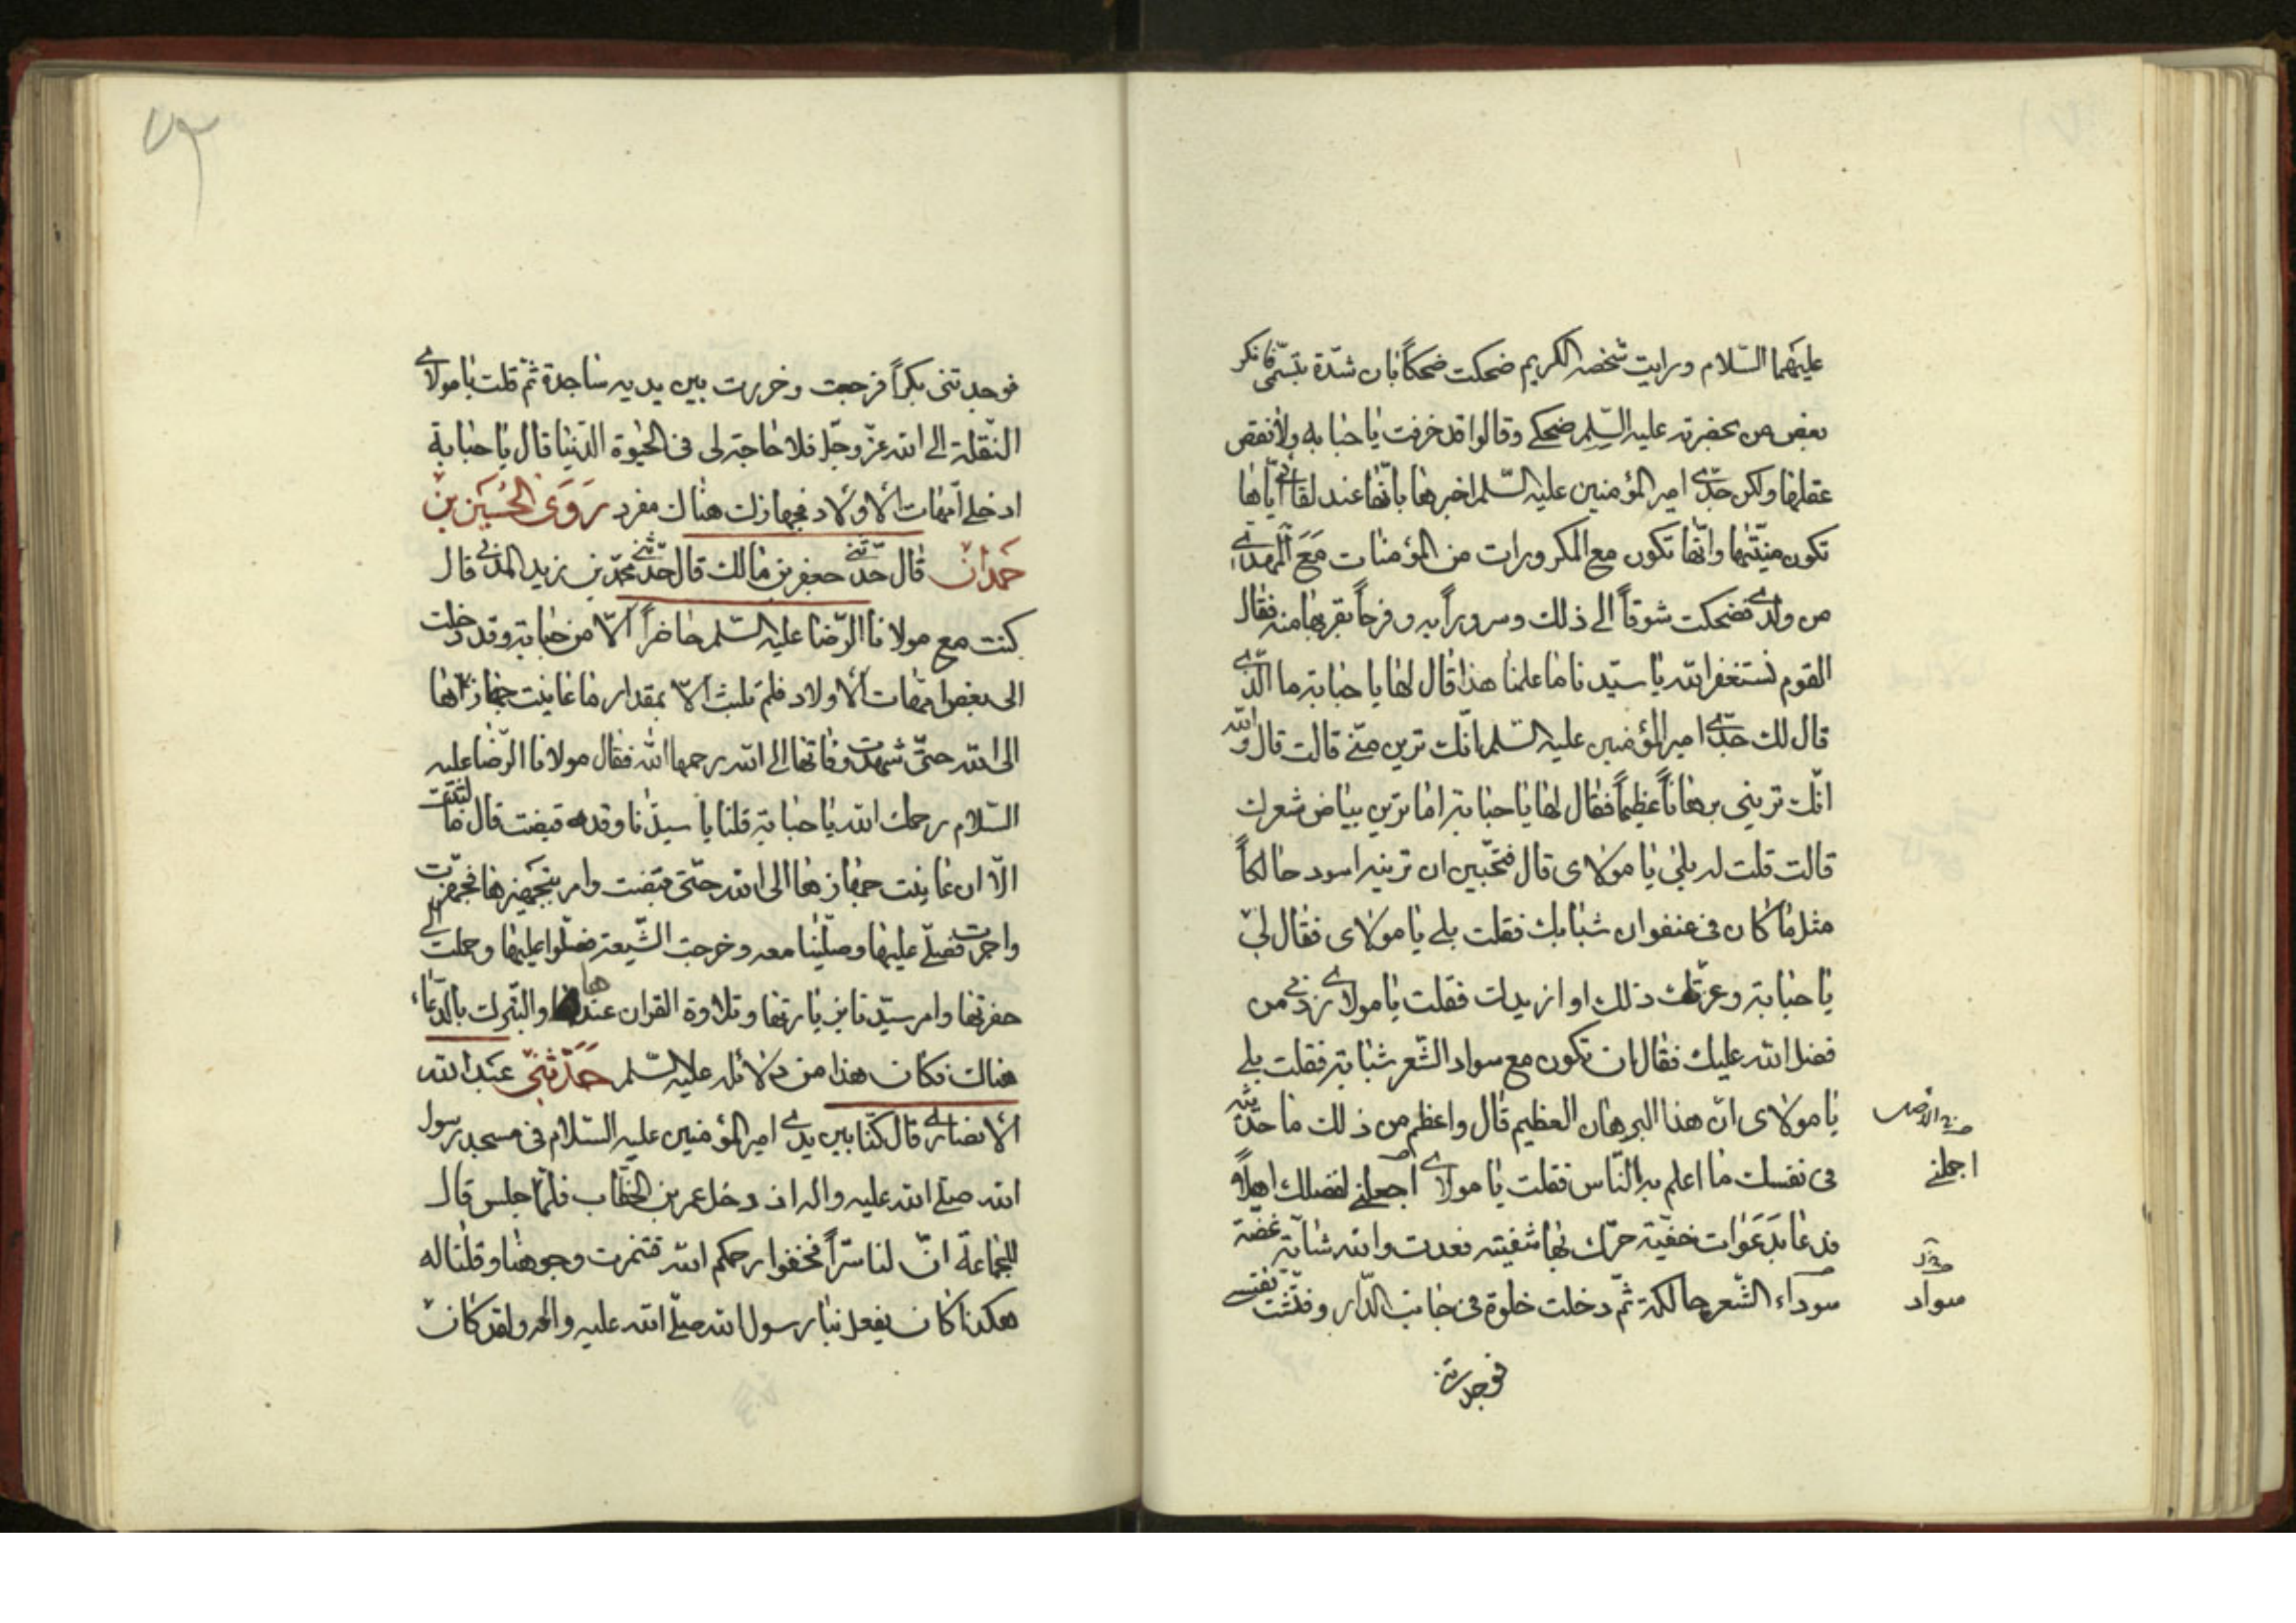 عليهما السّلام ورايت شخصه الكريم ضحكت ضحكاً بان شدّة تبسّمي فانكر
بعض من بحضرته عليه السّلم ضحكي وقالوا قد خرفت يا حبابه ولا نقص
عقلها ولكن جدّي امير المؤمنين عليه السّلم اخبرها بانّها عند لقائي ايّاها
تكون منيّتها وانّها تكون مع المكرورات من المؤمنات مَعَ المهدي
من ولدي فضحكت شوقاً الى ذلك وسروراً به وفرحاً بقربها منه فقال
القوم نستغفر الله يا سيّدنا ما علمنا هذا قال لها يا حبابة ما الّذي
قال لك جدّي امير المؤمنين عليه السّلم انّك ترين منّي قالت قال والله
انّك تريني برهاناً عظيماً فقال لها يا حبابة اما ترين بياض شعرك
قالت قلت له بلى يا مولاى قال فتحبّين ان ترينه اسود حالكاً
مثل ما كان فى عنفوان شبابك فقلت بلى يا مولاى فقال لي
يا حبابة وعزّتك ذلك او ازيدك فقلت يا مولاي زدني من
فضل الله عليك فقال ان تكون مع سواد الشّعر شبابة فقلت بلى
يا مولاى انّ هذا البرهان العظيم قال واعظم من ذلك ما حدّثته
فى نفسك ما اعلم به النّاس فقلت يا مولاي اجعلني لفضلك اهلاً
فدعا بدَعَوات خفيّة حرّك بها شفيته فعدت والله شابّة غضّة
سوداء الشّعر حالكة ثمّ دخلت خلوة فى جانب الدّار وفتّشت نفسي
فوجدتنى
اجعلني
سواد
٧٢
فوجدتنى بكراً فرجعت وخررت بين يديه ساجدة ثمّ قلت يا مولاي
النّقلة الى الله عزّ وجلّ فلا حاجة لى فى الحيٰوة الدّنيا قال يا حبابة
ادخلي امّهات الاولاد فجهازك هناك مفرد رَوَى الحُسَين بن
حَمدان قال حدّثني جعفر بن مالك قال حدّثني محمّد بن زيد المدني قال
كنت مع مولانا الرّضا عليه السّلم حاضراً لامر حبابة وقد دخلت
الى بعض امّهات الاولاد فلم تلبث الّا بمقدار ما عاينت جهازها
الى الله حتّى شهدت وفاتها الى الله رحمها الله فقال مولانا الرّضا عليه
السّلام رحمك الله يا حبابة قلنا يا سيدنا وقد قبضت قال ما لبثت
الّا ان عاينت جهازها الى الله حتّى قبضت وامر بتجهيزها فجهّزت
واخرجت فصلّى عليها وصلّينا معه وخرجت الشّيعة فصلّوا عليها وحملت الى
حفرتها وامر سيّدنا بزيارتها وتلاوة القران عندها والتبّرك بالدّعاء
هناك فكان هذا من دلائله عليه السّلم حَدّثنى عبد الله
الانصاري قال كنّا بين يدي امير المؤمنين عليه السّلام فى مسجد رسول
الله صلّى الله عليه واله اذ دخل عمر بن الخطّاب فلمّا جلس قال
للجماعة انّ لنا سرّاً فخفّفوا رحمكم الله فتغمرت وجوهنا وقلنا له
هكذا كان يفعل بنا رسول الله صلّى الله عليه واله ولقد كان